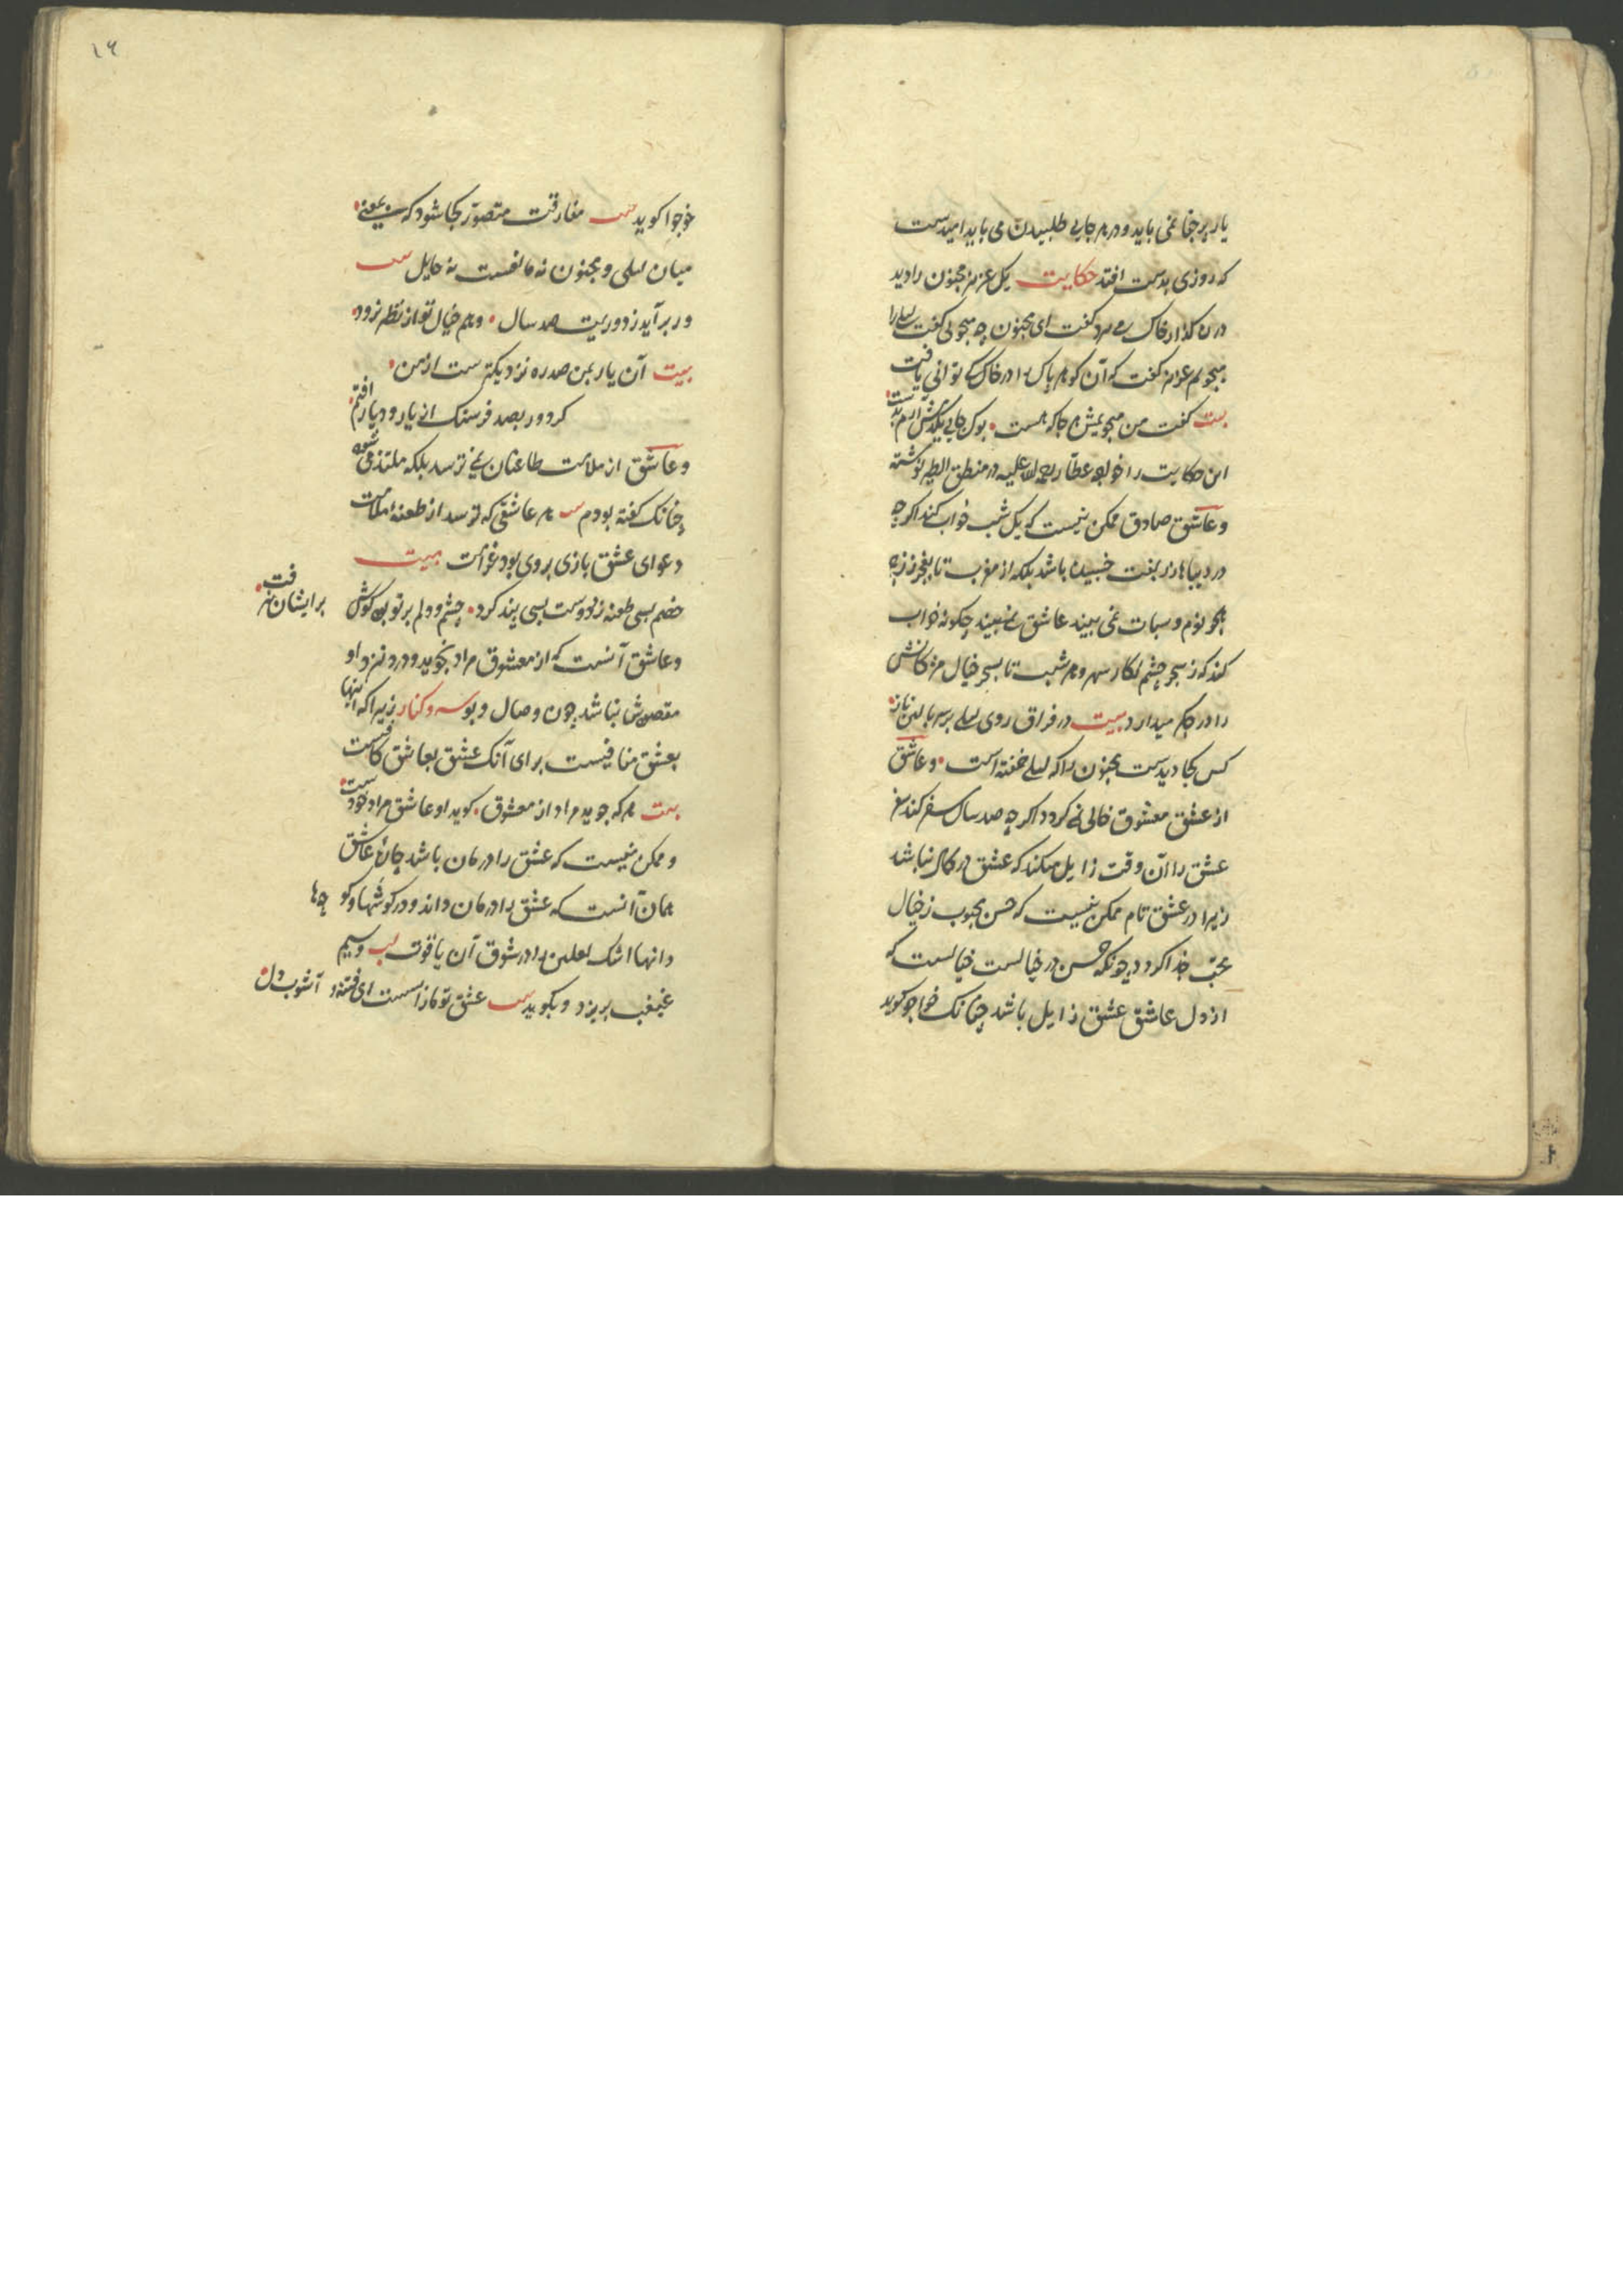 یار پر جفا نمی باید و در هر جایی طلبیدن می باید امیدست
که روزی بدست افتد حکایت یک عزیز مجنون را دید
در گذار خاک می گفت ای مجنون چه میجویی گفت لیلی را
میجویم عزیز گفت که آن کوهر پاک را در خاک کی توانی یافت
بیت کفت من میجویمش هر جا که هست بوک جایی یکدمش آرم بدست
این حکایت را خواجه عطار رحمة الله علیه در منطق الطیر نوشته
و عاشق صادق ممکن نیست که یک شب خواب کند اکر چه
در دیباها زربفت خسبیده باشد بلکه از مغرب تا بفجر
نوم و سبات نمی بیند عاشق نمی بیند چکونه خواب
کند که ز سحر چشم نکار و هر شب تا بسحر خیال مژکانش
را در میدارد بیت در فراق روی لیلی بر سر بالین ناز
کس کجا دیدست مجنون را که لیلی خفته است و عاشق
از عشق معشوق خالی نمی کردد اکر چه صد سال سفر کند سفر
عشق را آن وقت زایل میکند که عشق در کمال نباشد
زیرا در عشق تام ممکن نیست که حسن محبوب ز خیال
محب جدا کردد چونکه حسن در خیالست خیالست که
از دل عاشق عشق زایل باشد چنانک خواجو کوید
۱۶
خوجوا کوید مفارقت متصور کجا شود که بمعنی
میان لیلی و مجنون نه مانعست نه حایل
ور بر آید ز دوریت صد سال وهم خیال تو از نظر نرود
بیت آن یار بمن صد ره نزدیکترست از من
کر دور بصد فرسنک از یار و دیار افتم
و عاشق از ملامت طاعنان نمی ترسد بلکه ملتذ می شود
چنانک کفته بودم هر عاشقی که ترسد از طعنه ملامت
دعوای عشق بازی بر وی بود غرامت بیت
خصم بسی طعنه زد دوست بسی پند کرد چشم و دلم بر تو بود کوش
بر ایشان نرفت
و عاشق آنست که از معشوق مراد نجوید و در نزد او
مقصودش نباشد چون وصال و بوسه و کنار زیرا که اینها
بعشق منافیست برای آنک عشق بعاشق کافیست
بیت هر که جوید مراد از معشوق کوید او عاشق مراد خودست
و ممکن نیست که عشق را درمان باشد عاشق
همان آنست که عشق را درمان داند و در کوشها و کو چها
دانها اشک لعلین را در شوق آن یاقوت لب و سیم
غبغب بریزد و بکوید عشق تو مازاست ای فتنه و آشوب دل